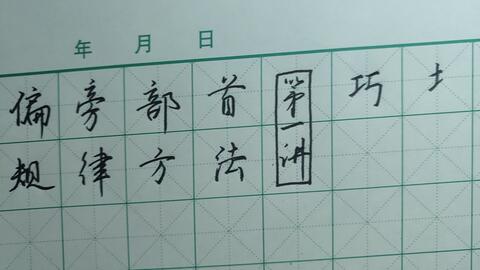 年 月 日
偏旁部首 第一讲 巧 土
规律方法